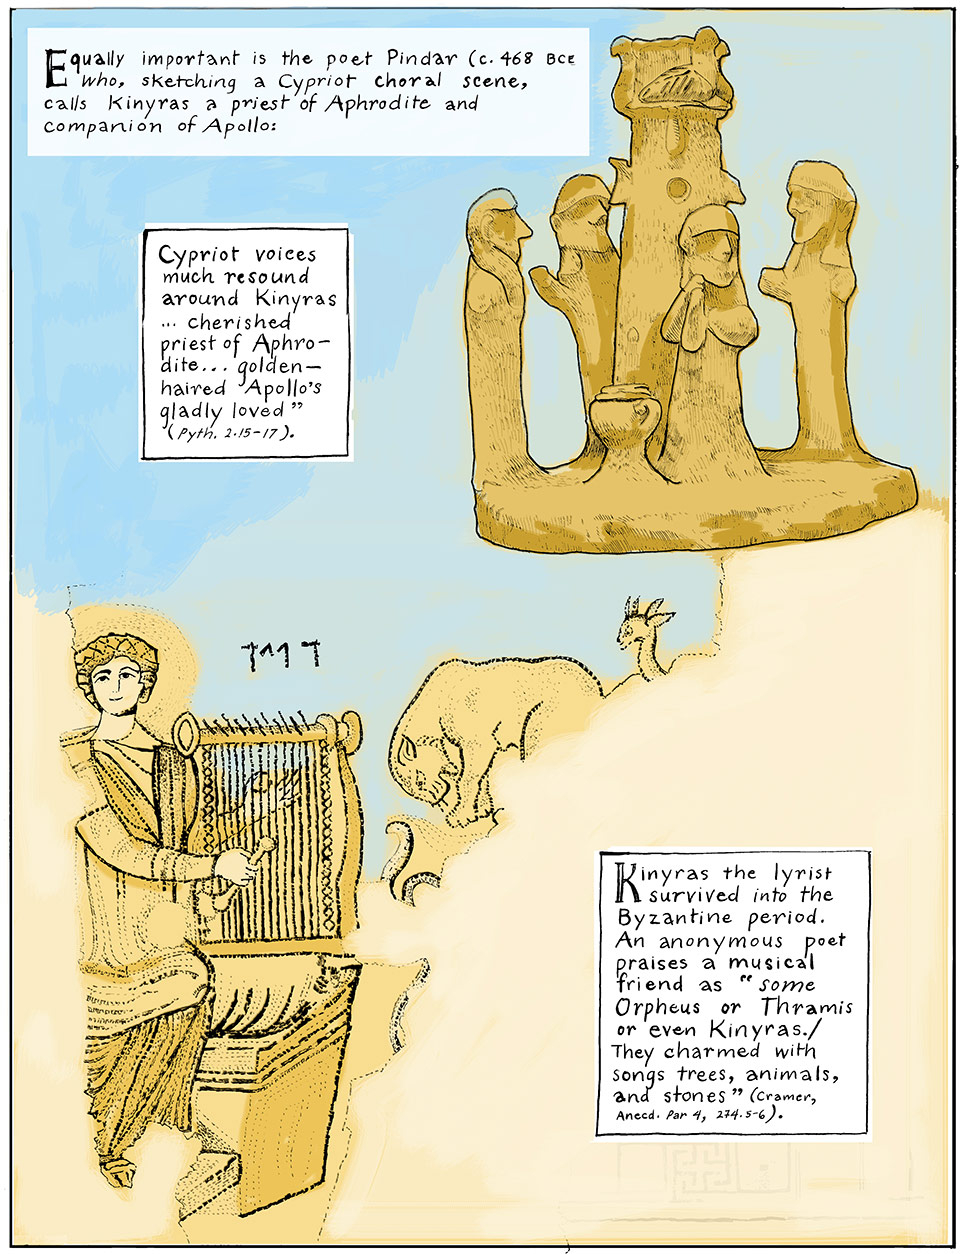 Equally important is the poet Pindar (c. 468 BCE
who, sketching a Cypriot choral scene,
calls Kinyras a priest of Aphrodite and
companion of Apollo:
Cypriot voices
much resound
around Kinyras
... cherished
priest of Aphro-
dite... golden-
haired Apollo's
gladly loved"
(Pyth. 2.15-17).
דויד
Kinyras the lyrist
survived into the
Byzantine period.
An anonymous poet
praises a musical
friend as "some
Orpheus or Thramis
or even Kinyras./
They charmed with
songs trees, animals,
and stones" (Cramer,
Anecd. Par 4, 274.5-6).